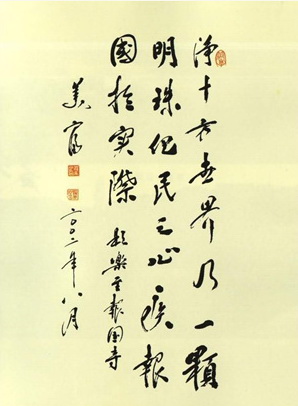 淨十方世界乃一顆
明珠但民之心報
國於實際
題樂至報國寺
二〇〇二年八月